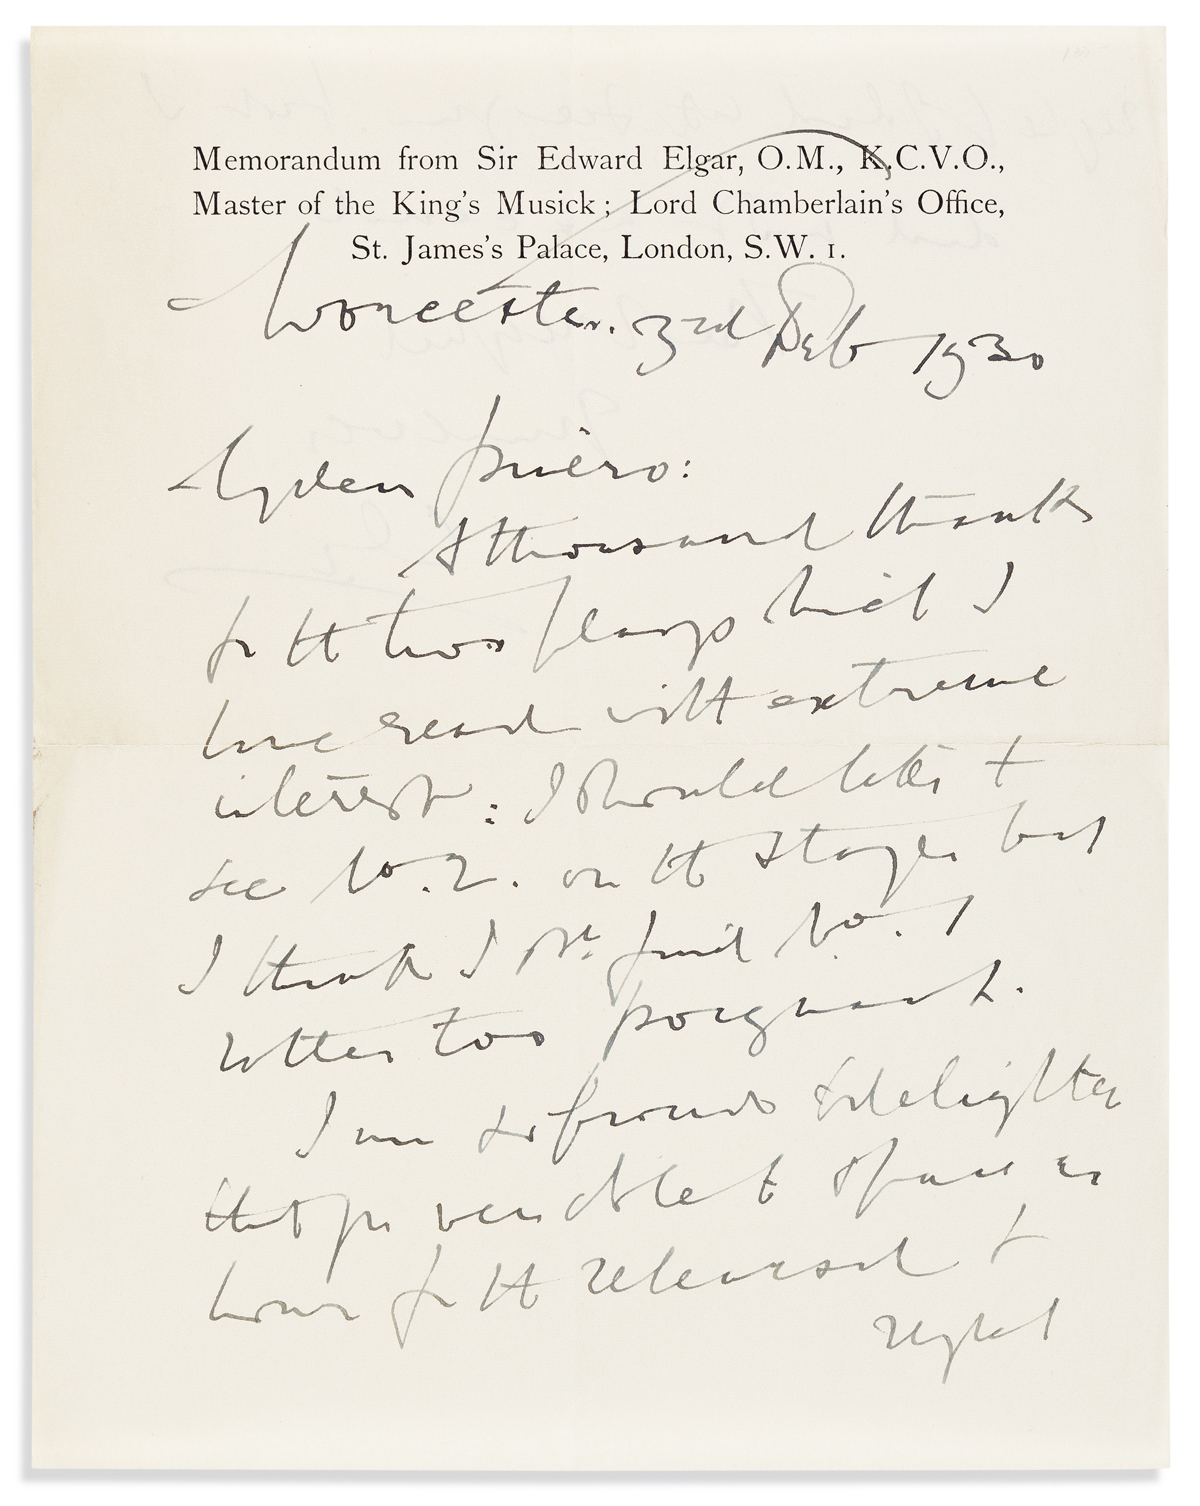 Memorandum from Sir Edward Elgar, O.M., K.C.V.O.,
Master of the King's Musick; Lord Chamberlain's Office,
St. James's Palace, London, S.W. 1.
Worcester. 3rd Feb 1930
My dear
A thousand thanks
for the two plays which I
have read with extreme
interest: I should like to
see No. 2. on the stage but
I think I shd find No. 1
rather too poignant.
I am so proud & delighted
that you were able to spare an
hour for the rehearsal &
regret